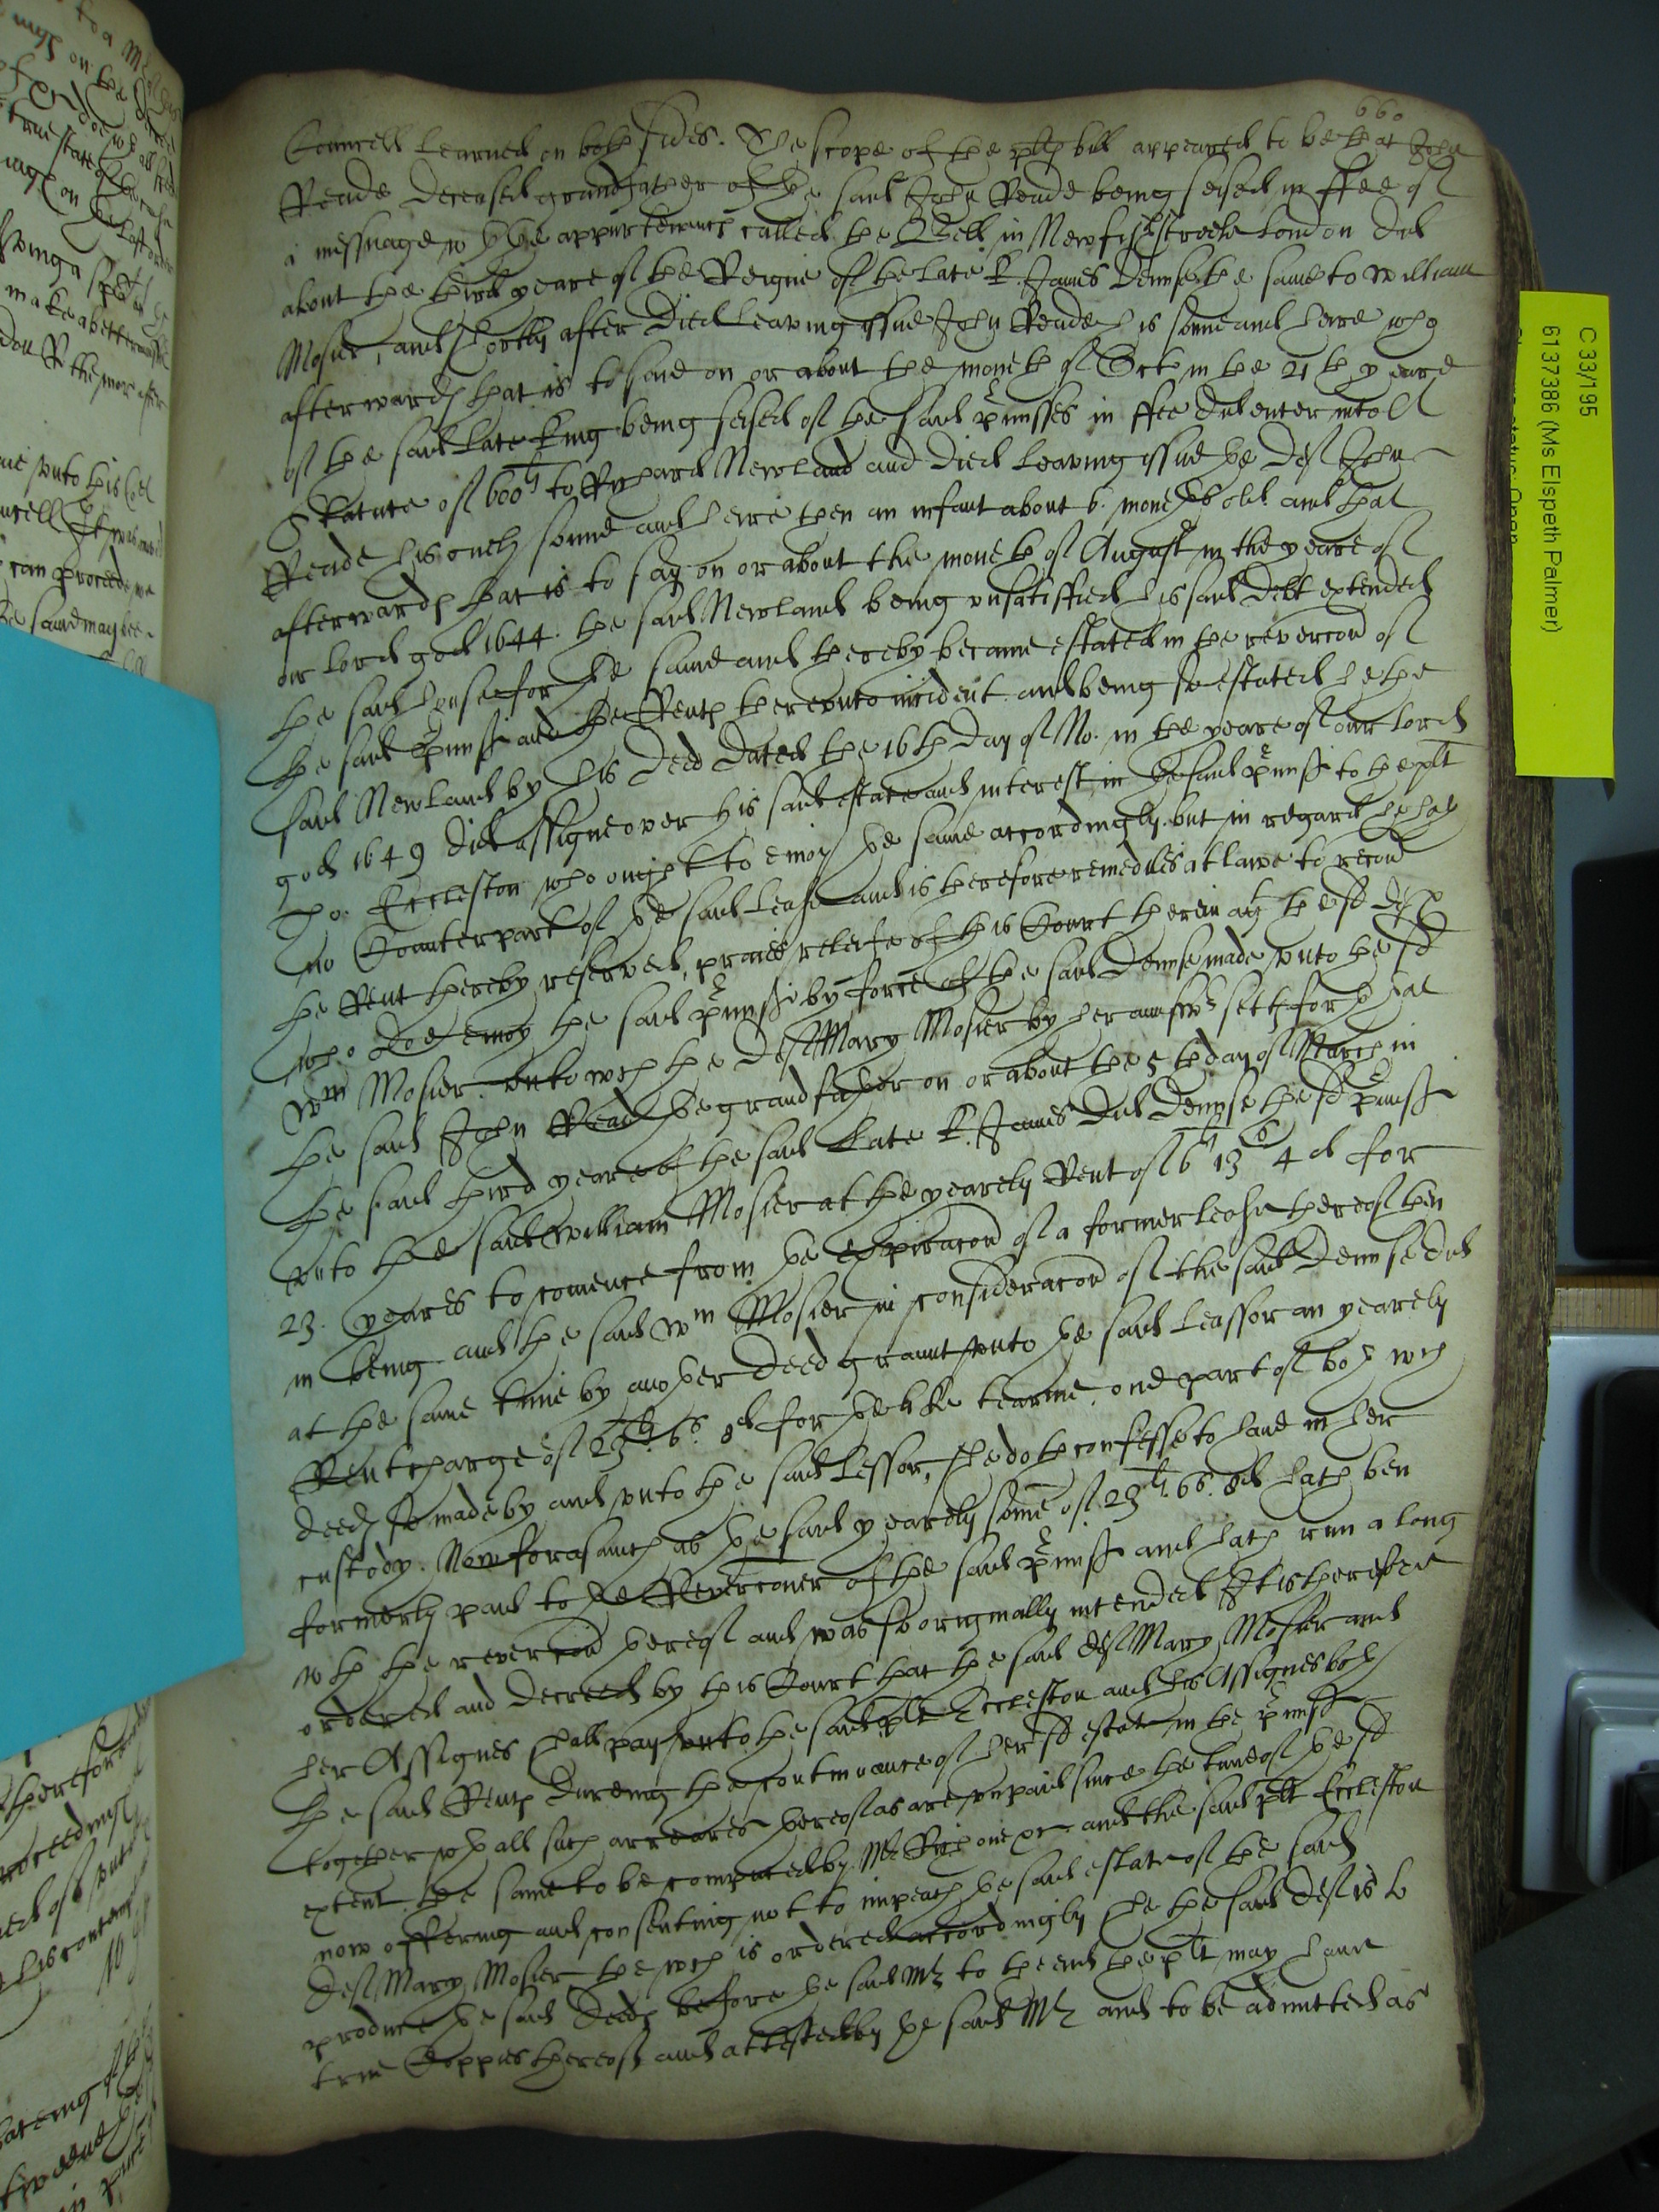 660
Councell Learned on both sides. The scope of the plts bill appeared to be that John
Reade deceased grandfather of the said John Reade being seised in ffee of
a messuage wth the appurtenancs called the Bell in Newfishstreete London did
about the third yeare of the Reigne of the late K. James demise the same to william
Mosier, and shortly after died Leaving issue John Reade his sonne and heire who
afterwards that is to saie on or about the moneth of Octr in the 21th yeare
of the said late King being seised of the said pmisses in ffee did enter into a
Statute of 600li to Richard Newland and died Leaving issue the deft John
Reade his onely sonne and heire then an infant about 6. moneths old. and that
afterwards that is to say on or about the moneth of August in the yeare of
our Lord god 1644. the said Newland being unsatisfied his said debt extended
the said house for the same and thereby became estated in the revercon of
the said pmiss and the Rents thereunto incident. and being so estated he the
said Newland by his deed dated the 16th day of No. in the yeare of our Lord
god 1649 did assigne over his said estate and interest in the said pmiss to the plt
Tho. Eccleston who ought to enioy the same accordingly. but in regard he hath
no Counterpart of the said Lease and is therefore remediles at lawe to recour
the Rent thereby reserved, praies releife of this Court therein agt the sd defts
who doe enioy the said pmiss by force of the said demise made unto the sd
Wm Mosier. unto wch the deft Mary Mosier by her answr setts forth that
the said John Read the grandfather on or about the 5th day of March in
the said third yeare of the said Late K. James did demise the sd pmiss
unto the said William Mosier at the yearely Rent of 6li 13s 4d for
23. yeares to comence from the expiracon of a former lease thereof then
in being and the said Wm Mosier in consideracon of the said demise did
at the same time by another deed graunt unto the said Leassor an yearely
Rentcharge of 23li. 6s. 8d for the like tearme, one part of both wch
deeds so made by and unto the said Lessor, she doth confesse to have in her
custody. Now forasmuch as the said yearely some of 23li. 6s. 8d hath ben
formerly paid to the Reverconer of the said pmiss and hath run a long
wth the revercon thereof and was so originally intended It is therefore
ordered and decreed by this Court that the said deft Mary Mosier and
her Assignes shall pay unto the said plt Eccleston and his Assignes both
the said Rents dureing the continuance of her sd estate in the pmiss
together wth all such arreares thereof as are unpaid since the time of the sd
extent. the same to be computed by Mr and the said plt Eccleston
now offering and consenting not to impeach the said estate of the said
deft Mary Mosier the wch is ordered accordingly she the said deft is to
produce the said deeds before the said Mr to the end the plt may have
true Coppies thereof and attested by the said Mr and to be admitted as
C 33/195
6137386 (Ms Elspeth Palmer)